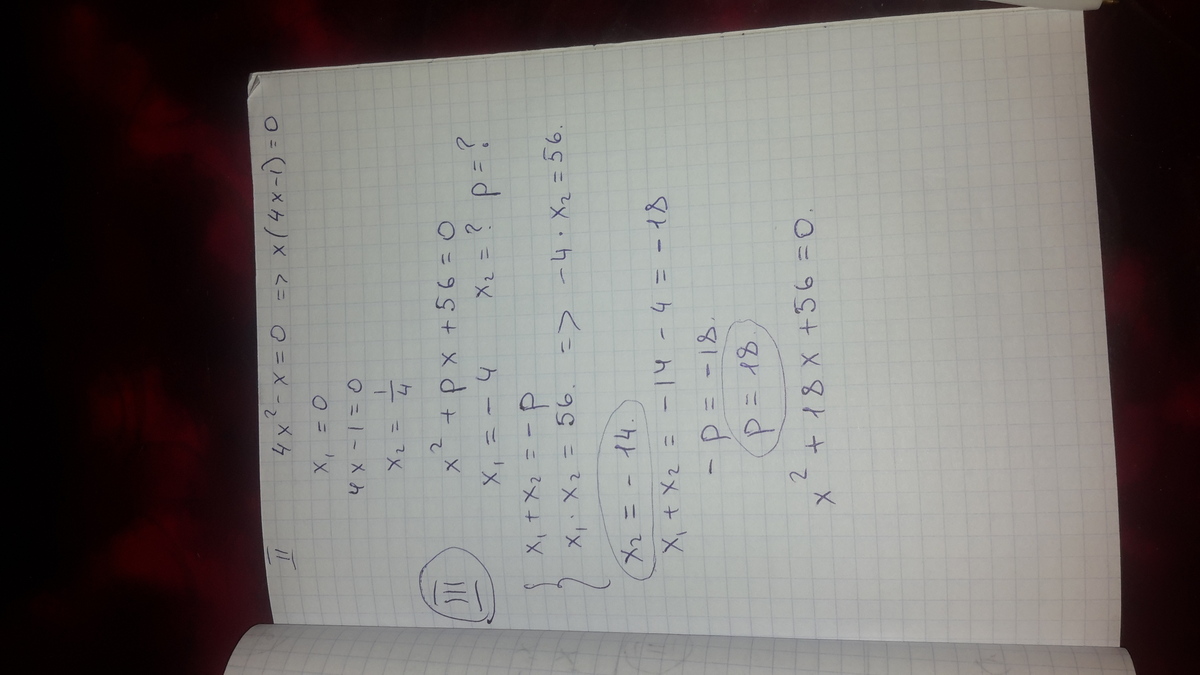 II 4x² - x = 0 => x(4x-1) = 0
x₁ = 0
4x - 1 = 0
x₂ = 1/4
III x² + px + 56 = 0
x₁ = -4 x₂ = ? p = ?
{ x₁ + x₂ = -p
x₁ · x₂ = 56. => -4 · x₂ = 56.
x₂ = -14.
x₁ + x₂ = -14 - 4 = -18
-p = -18.
p = 18.
x² + 18x + 56 = 0.